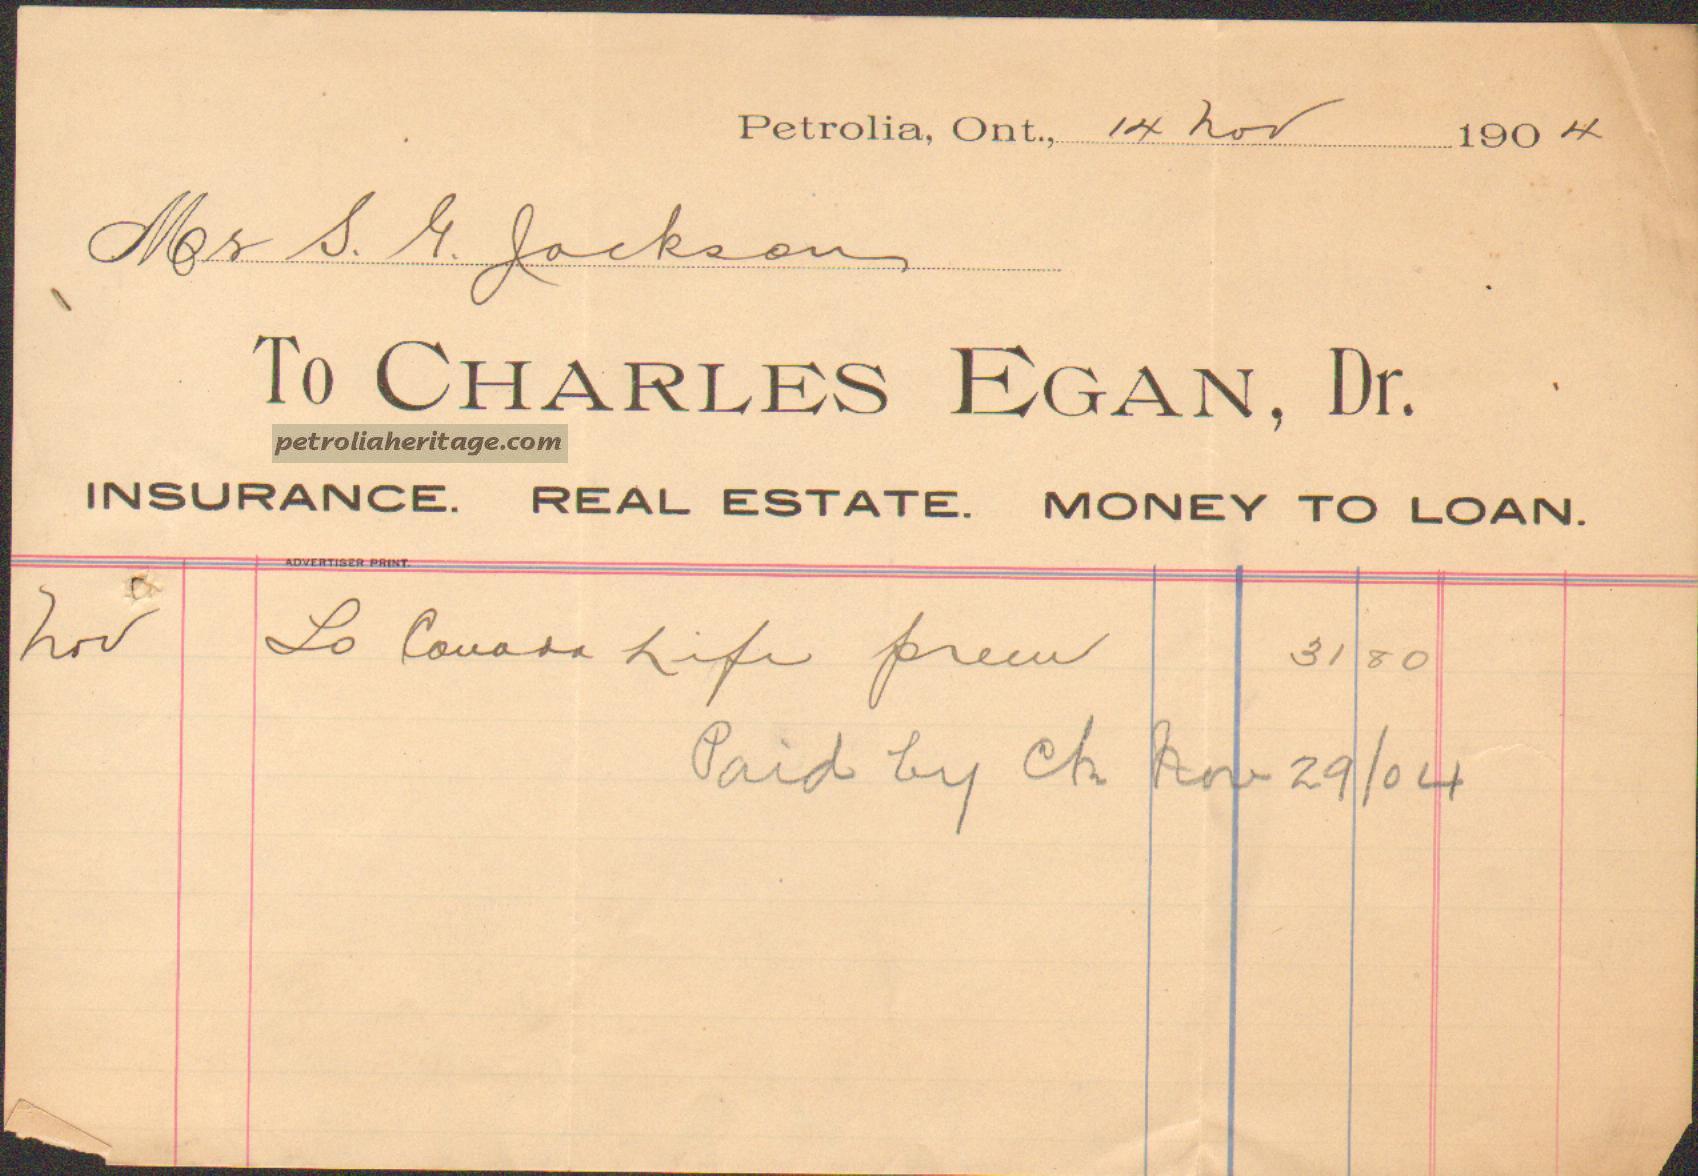 Petrolia, Ont., 14 Nov 1904
Mrs S. G. Jackson
To Charles Egan, Dr.
petroliaheritage.com
INSURANCE. REAL ESTATE. MONEY TO LOAN.
ADVERTISER PRINT.
Nov To Canada Life prem 31 80
Paid by Ck Nov 29/04